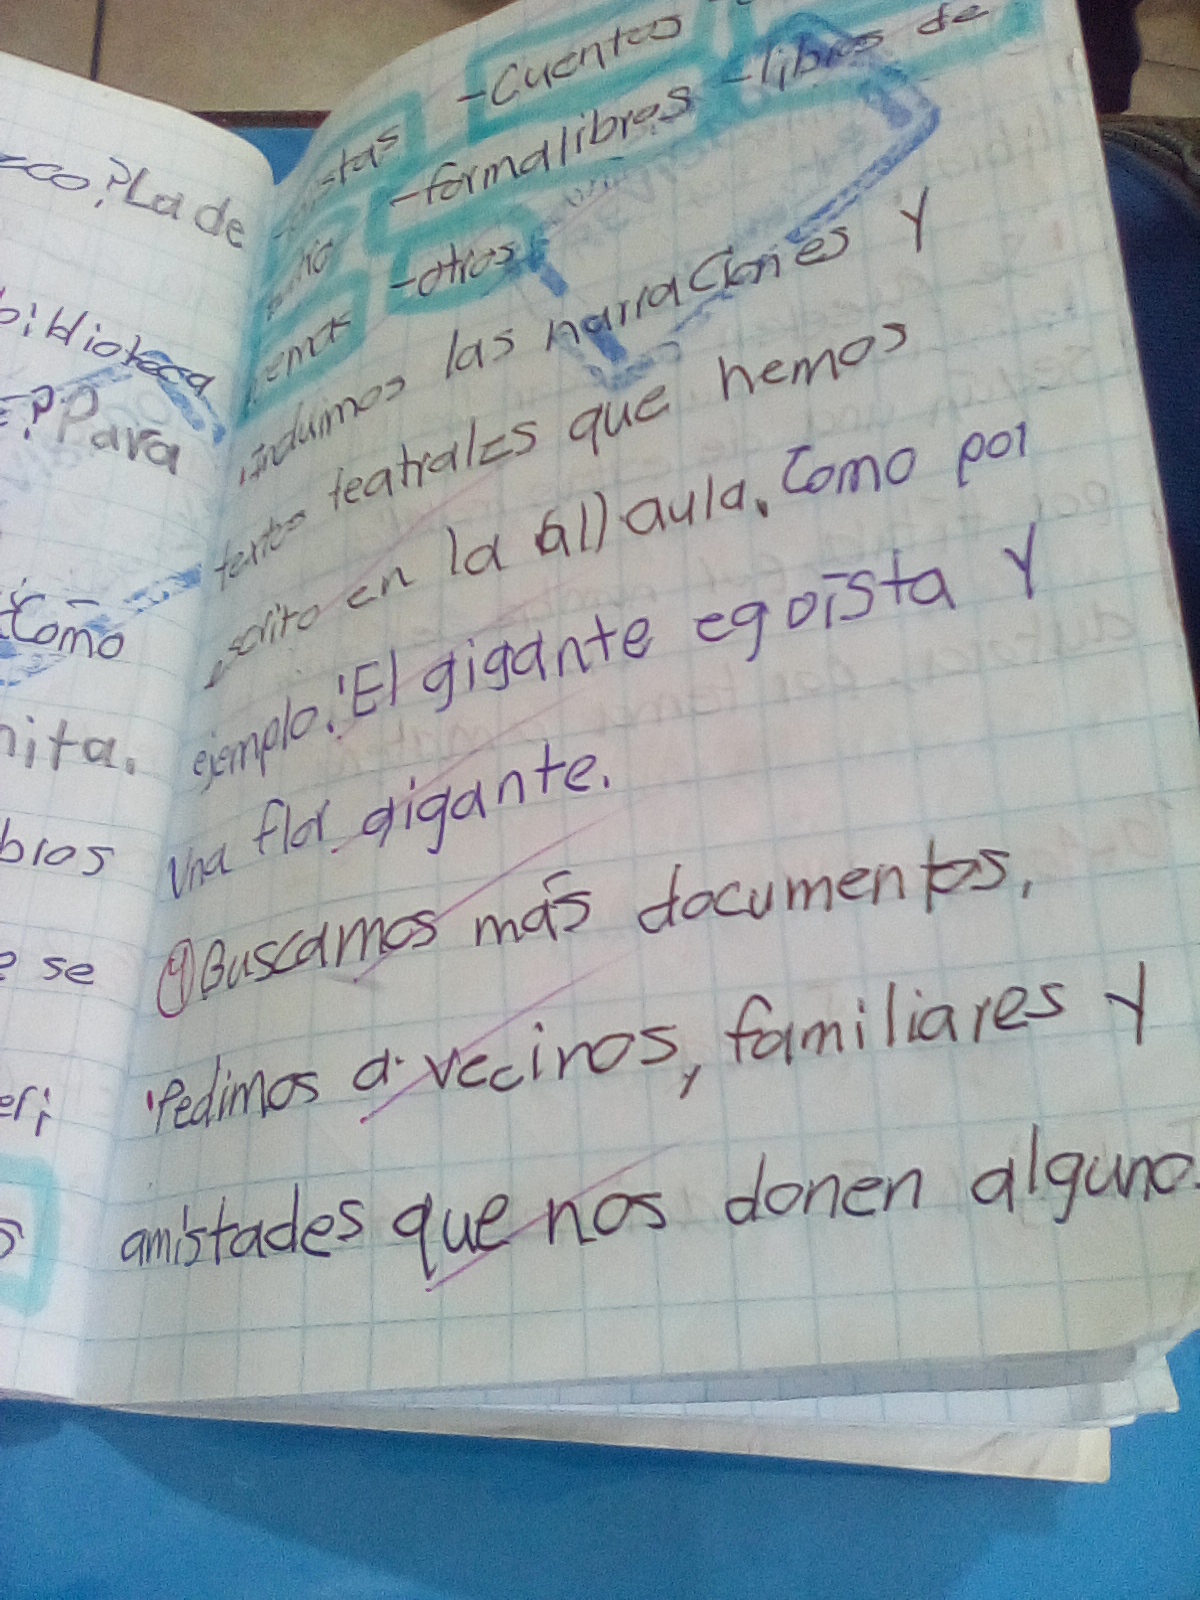 ?La de
biblioteca
? Para
Como
nita.
bros
se
-Cuentos
-formalibros -libros de
-otros
Incluimos las narraciones y
textos teatrales que hemos
escrito en la (el) aula. Como por
ejemplo: El gigante egoísta y
una flor gigante.
Buscamos más documentos,
Pedimos a vecinos, familiares y
amistades que nos donen alguno